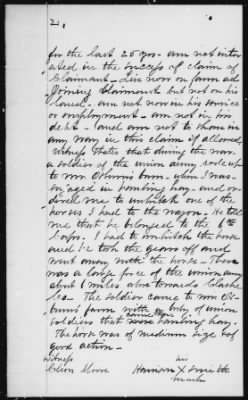 2.
for the last 25 yrs - am not inter
ested in the success of claim of
Claimant - Live now on farm ad
joining Claimant but not on his
land - am not now in his service
or employment - am not in his
debt - and am not to share in
any way in this claim if allowed.
Witness states that during the war
a soldier of the union army rode up
to Mr barn - when I was
engaged in hauling hay - and or
dered me to unhitch one of the
horses I had to the wagon - He told
me that he belonged to the 6th
Corps. I had to unhitch the horse
and he took the gears off and
went away with the horse - There
was a large force of the union army
about 1 miles above towards
Co - The soldier came to Mr
farm with body of union
soldiers that were hauling hay.
The horse was of medium size & of
good action -
Witness his
Moore Harrison X Smith
mark